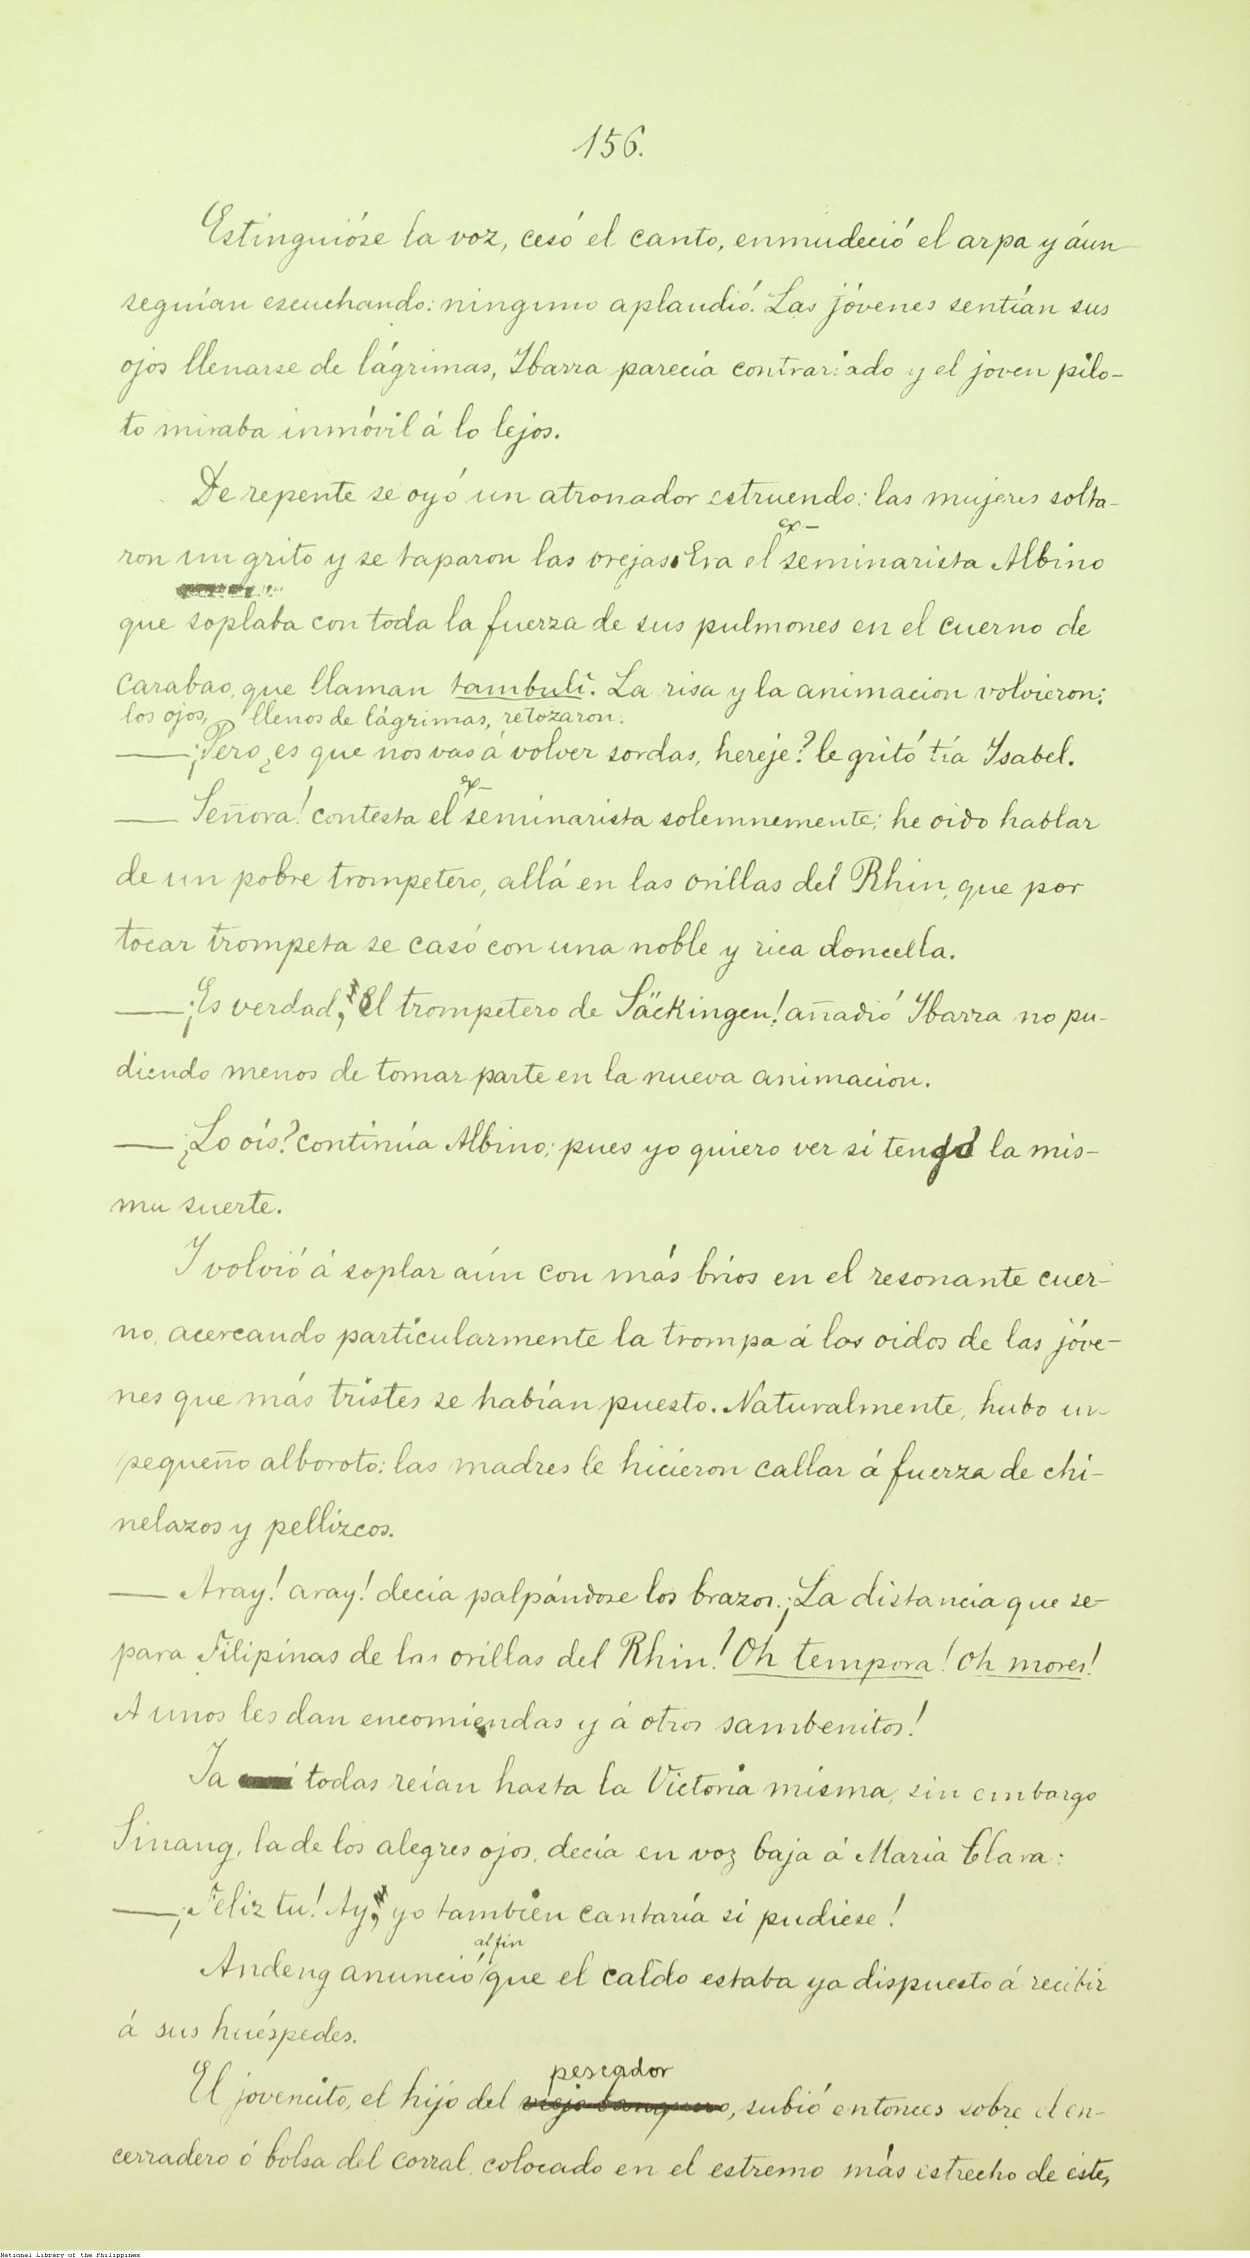 156.
Estinguióse la voz, cesó el canto, enmudeció el arpa y áun
seguían escuchando: ninguno aplaudió. Las jóvenes sentían sus
ojos llenarse de lágrimas, Ibarra parecía contrariado y el joven pilo-
to miraba inmóvil á lo lejos.
De repente se oyó un atronador estruendo: las mujeres solta-
ex-
ron un grito y se taparon las orejas. Era el seminarista Albino
que soplaba con toda la fuerza de sus pulmones en el cuerno de
carabao, que llaman tambulî. La risa y la animacion volvieron;
los ojos, llenos de lágrimas, retozaron.
— ¡Pero ¿es que nos vas á volver sordas, hereje? le gritó tía Isabel.
ex-
— Señora! contesta el seminarista solemnemente; he oido hablar
de un pobre trompetero, allá en las orillas del Rhin, que por
tocar trompeta se casó con una noble y rica doncella.
— ¡Es verdad, el trompetero de Säckingen! añadió Ibarra no pu-
diendo menos de tomar parte en la nueva animacion.
— ¿Lo oís? continúa Albino; pues yo quiero ver si tengo la mis-
ma suerte.
I volvió á soplar aún con más bríos en el resonante cuer-
no, acercando particularmente la trompa á los oidos de las jóve-
nes que más tristes se habían puesto. Naturalmente, hubo un
pequeño alboroto; las madres le hicieron callar á fuerza de chi-
nelazos y pellizcos.
— Aray! aray! decía palpándose los brazos. ¡La distancia que se-
para Filipinas de las orillas del Rhin! Oh tempora! Oh mores!
A unos les dan encomiendas y á otros sambenitos!
Ya todas reían hasta la Victoria misma, sin embargo
Sinang, la de los alegres ojos, decía en voz baja á María Clara:
— ¡Feliz tu! Ay, yo tambien cantaría si pudiese!
al fin
Andeng anunció que el caldo estaba ya dispuesto á recibir
á sus huéspedes.
pescador
El jovencito, el hijo del viejo banquero, subió entonces sobre el en-
cerradero ó bolsa del corral, colocado en el estremo más estrecho de éste,
National Library of the Philippines